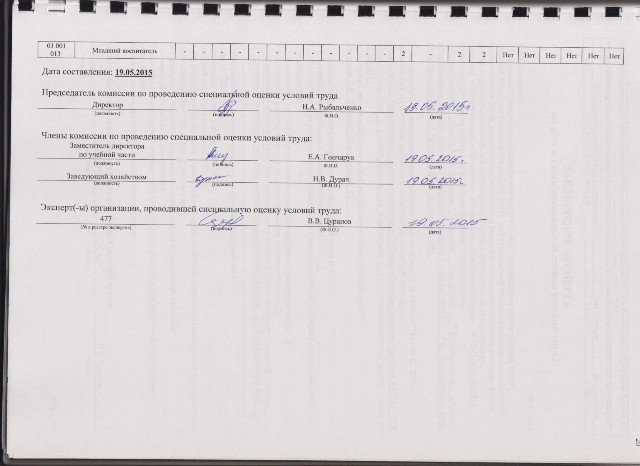 01 001 013 Младший воспитатель - - - - - - - - - - - - 2 - 2 2 Нет Нет Нет Нет Нет Нет
Дата составления: 19.05.2015
Председатель комиссии по проведению специальной оценки условий труда
Директор Н.А. Рыбальченко 19.05.2015г
(должность) (подпись) Ф.И.О. (дата)
Члены комиссии по проведению специальной оценки условий труда:
Заместитель директора
по учебной части Е.А. Гончарук 19.05.2015г.
(должность) (подпись) Ф.И.О. (дата)
Заведующий хозяйством Н.В. Дурач 19.05.2015г.
(должность) (подпись) (Ф.И.О.) (дата)
Эксперт(-ы) организации, проводившей специальную оценку условий труда:
477 В.В. Цуранов 19.05.2015
(№ в реестре экспертов) (подпись) (Ф.И.О.) (дата)